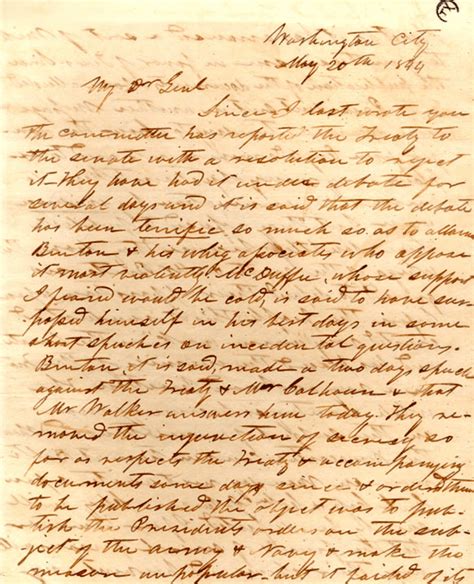 Washington City
May 20th 1844
My Dr Genl
Since I last wrote you
the committee has reported the Treaty to
the senate with a resolution to reject
it - They have had it under debate for
several days and it is said that the debate
has been terrific so much so as to alarm
Benton & his whig associates who oppose
it most violently McDuffie, whose support
I feared would be cold, is said to have sur
passed himself in his best days in some
short speeches on incidental questions.
Benton, it is said, made a two days speech
against the Treaty & Mr Calhoun & that
Mr Walker answers him today. They re
moved the injunction of secresy so
far as respects the Treaty & accompanying
documents some days since & ordered them
to be published the object was to pub-
lish the Presidents orders on the sub-
ject of the army & Navy & make the
measure unpopular but it failed of it